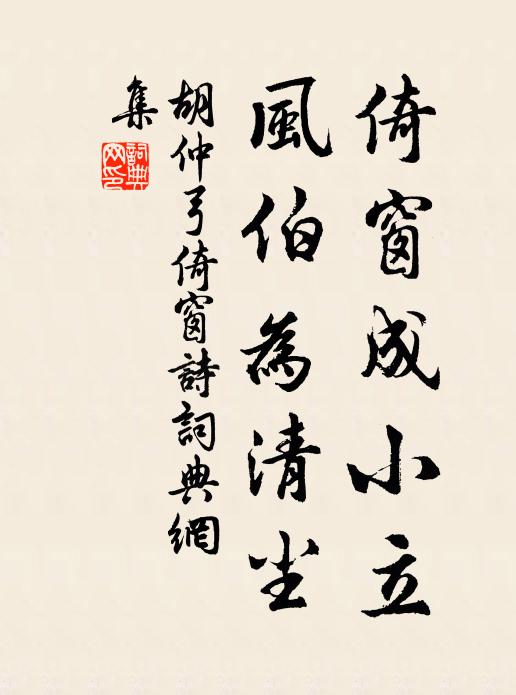 倚窗成小立
風伯為清尘
胡仲弓倚窗詩詞典網
集
詞典
网印